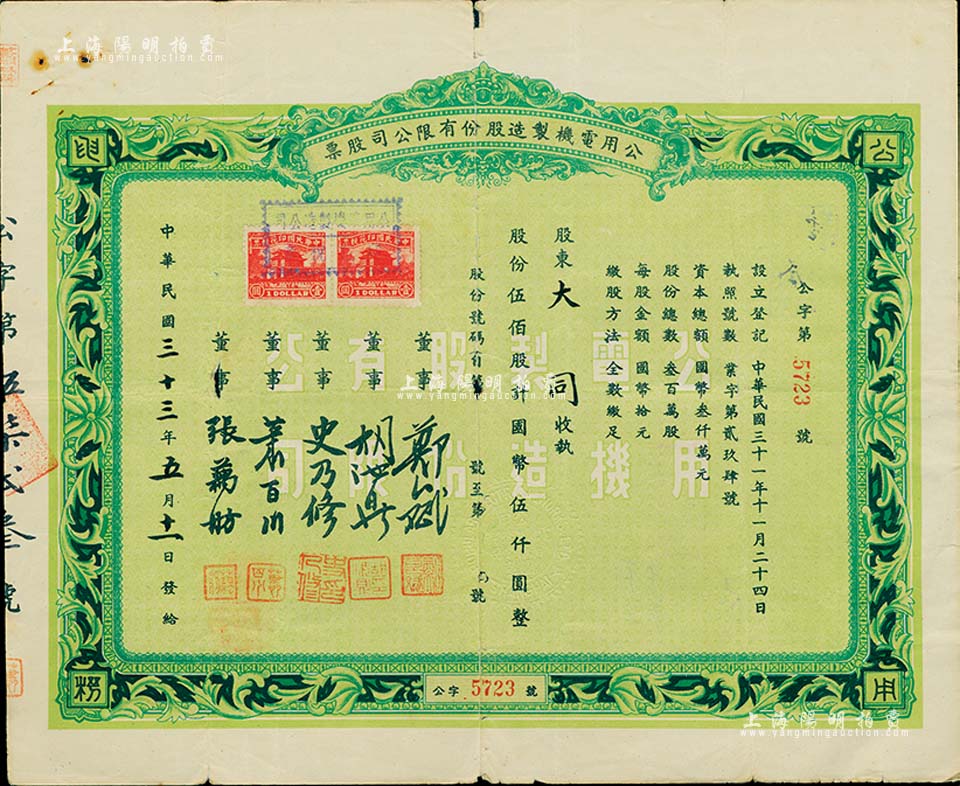 上海陽明拍賣
www.yangmingauction.com
公用電機製造股份有限公司股票
公
用
公字第 5723 號
設立登記 中華民國三十一年十一月二十四日
執照號數 業字第貳玖肆號
資本總額 國幣叁仟萬元
股份總數 叁百萬股
每股金額 國幣拾元
繳股方法 全數繳足
股東 大同 收執
股份伍佰股計國幣伍仟圓整
股份號碼自第 號至第 號
董事
董事 胡漢鼎
董事 史乃修
董事 蕭百川
董事 張萬舫
中華民國三十三年五月十一日發給
公用電機製造公司
中華民國印花稅票
中華民國印花稅票
壹 1 DOLLAR 圓
壹 1 DOLLAR 圓
公用電機製造股份有限公司
上海陽明拍賣
www.yangmingauction.com
公字 5723 號
公字第伍柒貳叁號
上海陽明拍賣
www.yangmingauction.com